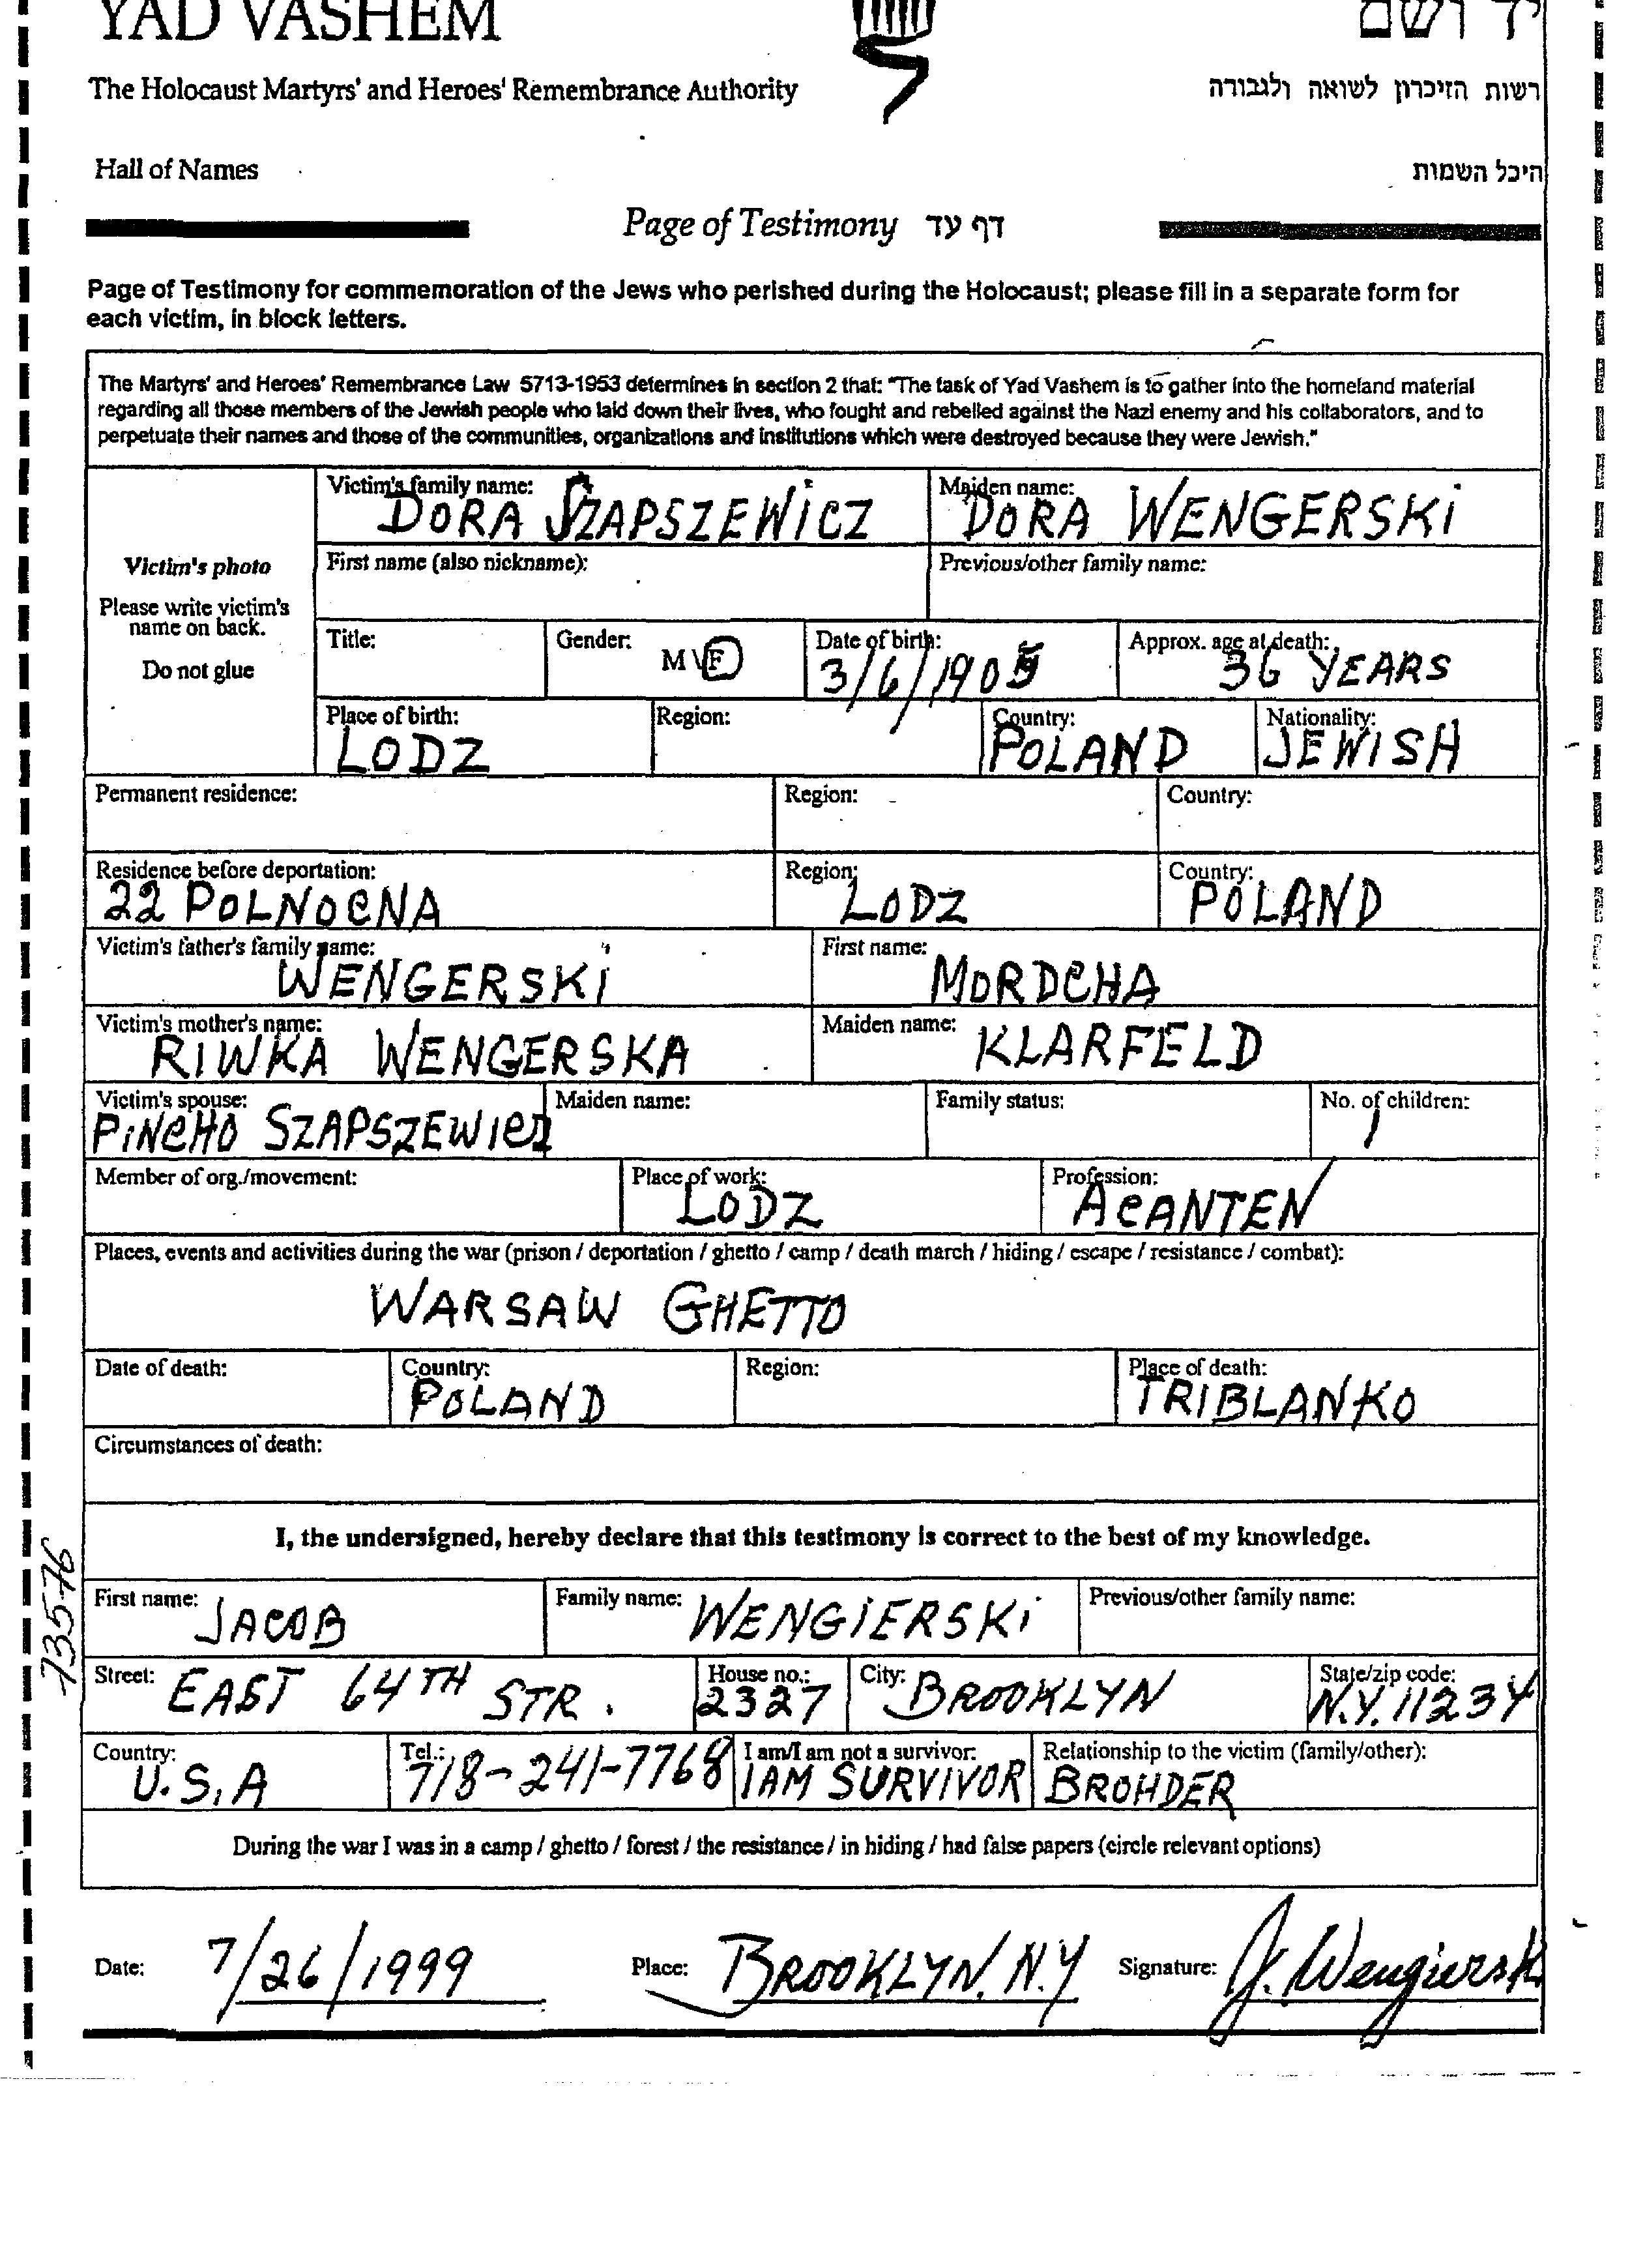 YAD VASHEM יד ושם
The Holocaust Martyrs' and Heroes' Remembrance Authority רשות הזיכרון לשואה ולגבורה
Hall of Names היכל השמות
Page of Testimony דף עד
Page of Testimony for commemoration of the Jews who perished during the Holocaust; please fill in a separate form for
each victim, in block letters.
The Martyrs' and Heroes' Remembrance Law 5713-1953 determines in section 2 that: "The task of Yad Vashem is to gather into the homeland material
regarding all those members of the Jewish people who laid down their lives, who fought and rebelled against the Nazi enemy and his collaborators, and to
perpetuate their names and those of the communities, organizations and institutions which were destroyed because they were Jewish."
Victim's photo
Please write victim's
name on back.
Do not glue
Victim's family name: DORA SZAPSZEWICZ Maiden name: DORA WENGERSKI
First name (also nickname): Previous/other family name:
Title: Gender: M \ F Date of birth: 3/6/190 Approx. age at death: 36 YEARS
Place of birth: LODZ Region: Country: POLAND Nationality: JEWISH
Permanent residence: Region: Country:
Residence before deportation: 22 POLNOCNA Region: LODZ Country: POLAND
Victim's father's family name: WENGERSKI First name: MORDCHA
Victim's mother's name: RIWKA WENGERSKA Maiden name: KLARFELD
Victim's spouse: PINCHO SZAPSZEWICZ Maiden name: Family status: No. of children: 1
Member of org./movement: Place of work: LODZ Profession: ACANTEN
Places, events and activities during the war (prison / deportation / ghetto / camp / death march / hiding / escape / resistance / combat):
WARSAW GHETTO
Date of death: Country: POLAND Region: Place of death: TRIBLANKO
Circumstances of death:
I, the undersigned, hereby declare that this testimony is correct to the best of my knowledge.
First name: JACOB Family name: WENGIERSKI Previous/other family name:
Street: EAST 64TH STR. House no.: 2327 City: BROOKLYN State/zip code: N.Y. 11234
Country: U.S.A Tel.: 718-241-7768 I am/I am not a survivor: I AM SURVIVOR Relationship to the victim (family/other): BROHDER
During the war I was in a camp / ghetto / forest / the resistance / in hiding / had false papers (circle relevant options)
Date: 7/26/1999 Place: BROOKLYN, N.Y Signature: J. Wengierski
73576